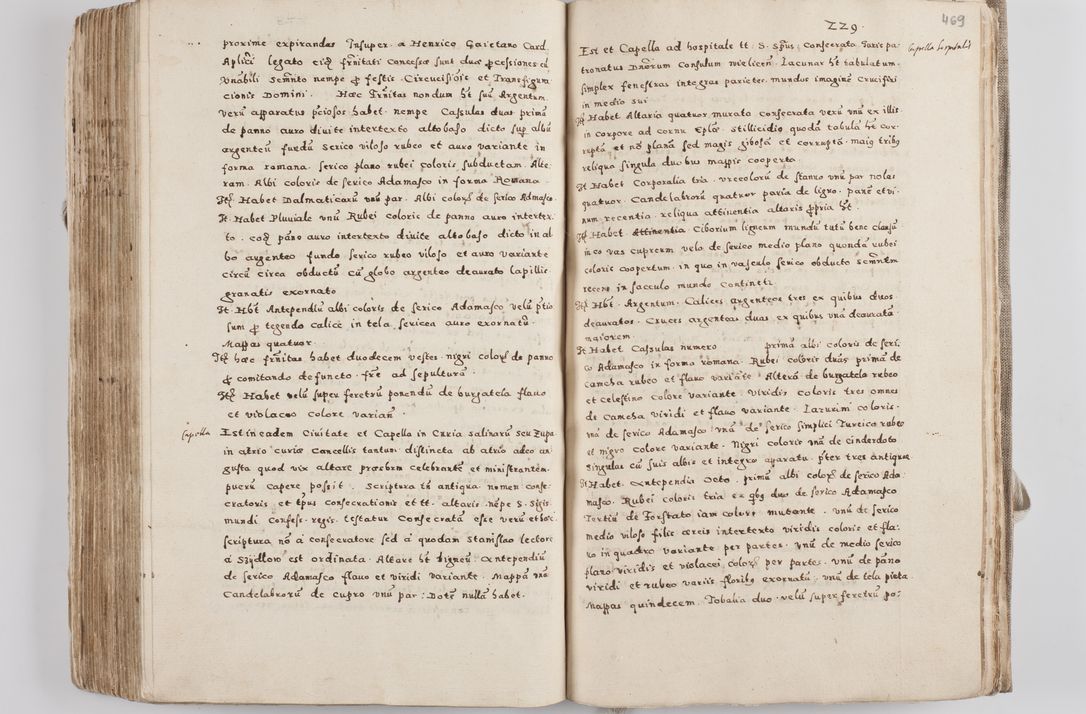 proxime expirandas Insuper a Henrico Gaietano Card.
Aplici legato eidē frnitati Concessæ sunt duæ ꝓcessiones cū
Vnābili Semnito nempe ꝓ festis Circucisiōis et Transfigura
cionis Domini. Hæc Frnitas nondum ht suū Argentum.
verū apparatus ṗciosos habet. nempe Casulas duas primā
de panno auro diuite intertexto altobaso dicto sup albū
argenteū fundū Serico viloso rubeo et auro variante in
forma romana. serico plano rubei coloris subductam. Alte
ram. Albi coloris de serico Adamasco in forma Romana.
Itē Habet Dalmaticarū vnū par. Albi colorꝫ de serico Admasco
It. Habet Pluuiale vnū Rubei coloris de panno auro intertex
to. eoꝫ pāno auro intertexto diuite altobaso dicto in al
bo argenteo fundo serico rubeo viloso et auro variante
circū circa obductū cū globo argenteo deaurato lapillis
granatis exornato
It. Hbt Antependiū albi coloris de serico Adamasco velū ṗtio
sum ꝓ tegendo calice in tela sericea auro exornatū.
Mappas quatuor.
Itē hæc frnitas habet duodecem vestes. nigri colorꝫ de panno
ꝓ comitando defuncto fre ad sepulturā.
Itē Habet velū super feretrū ponendū de burgatela flauo
et violaceo colore varian
Capella Est in eadem Ciuitate et Capella in Curia salinarū seu Zupa
in atrio curiæ Cancellis tantum distincta ab atrio adeo an
gusta quod vix altare præsbrm celebrantē et ministrantem
puerū capere possit. Scriptura tn antiqua nomen conse
cratoris et tpus Consecrationis et tt. altaris nēpe S. Sigis
mundi Confess. regis. testatur Consecratā esse verū et hæc
scriptura nō a consecratore sed a quodam Stanislao lectore
a Szydlow est ordinata. Altare ht ligneū Antependiū
de serico Adamasco flauo et viridi variante. Mappā vnā
Candelabrorū de cupro vnū par. Dotē nullā habet.
229.
469
Capella hospitalis
Est et Capella ad hospitale tt. S. Spūs Consecrata Iuris pa
tronatus Dnorum Consulum vielicen. Lacunar ht tabulatum.
simplex fenestras integras parietes. mundos imaginē Crucifixi
in medio sui
It Habet Altaria quatuor murato consecrata verū vnū ex illis
in corpore ad cornu Epla. stillicidio quodā tabulā ht cor
ruptā et nō planā sed magis gibosā et corruptā. maiꝫ tribꝫ
reliqua singula duobus mappis cooperta
It Habet Corporalia tria. vrceolorū de stanno vnū par nolas
quatuor. Candelabrorū quatuor paria de ligno. panē et vi
num recentia. reliqua attinentia altaris ꝓpria ht.
Itē Habet Attinentia Ciborium ligneum mundū tutū bene clausū
in eo vas cupreum velo de serico medio plano quondā rubei
coloris coopertum in quo in vasculo serico obducto semntm
recens in sacculo mundo Continetꝫ
Itē Hbt. Argentum. Calices argenteos tres ex quibus duos
deauratos. Cruces argenteas duas ex quibus vnā deauratā
maiorem
It Habet Casulas numero primā albi coloris de seri.
co Adamasco in forma romana. Rubei coloris duas primā de
camcha rubeo et flauo variāte. Alterā de burgatela rubeo
et celestino colore variante. viridis coloris tres omnes
de Camcha viridi et flauo variante. Lazurini coloris.
vnā de serico Adamasco vnā de serico simplici Turcico rubeo
et nigro colore variante. Nigri coloris vnā de cinderdoto
singulas cū suis albis et integro aparatu. ṗter tres antiquas
It Habet Antependia Octo. primū albi colorꝫ de serico Ada
masco. Rubei coloris tria ex qbꝫ duo de serico Adamasco
Tertiū de Forstato iam colore mutante. vnū de serico
medio viloso filis æreis intertexto viridis coloris et fla
uo in quadro variante per partes. vnū de medio serico
plano viridis et violacei colorꝫ per partes. vnū de pāno
viridi et rubeo variis floribꝫ exornatū. vnū de tela picta
Mappas quindecem. Tobalia duo. velū super feretrū po: